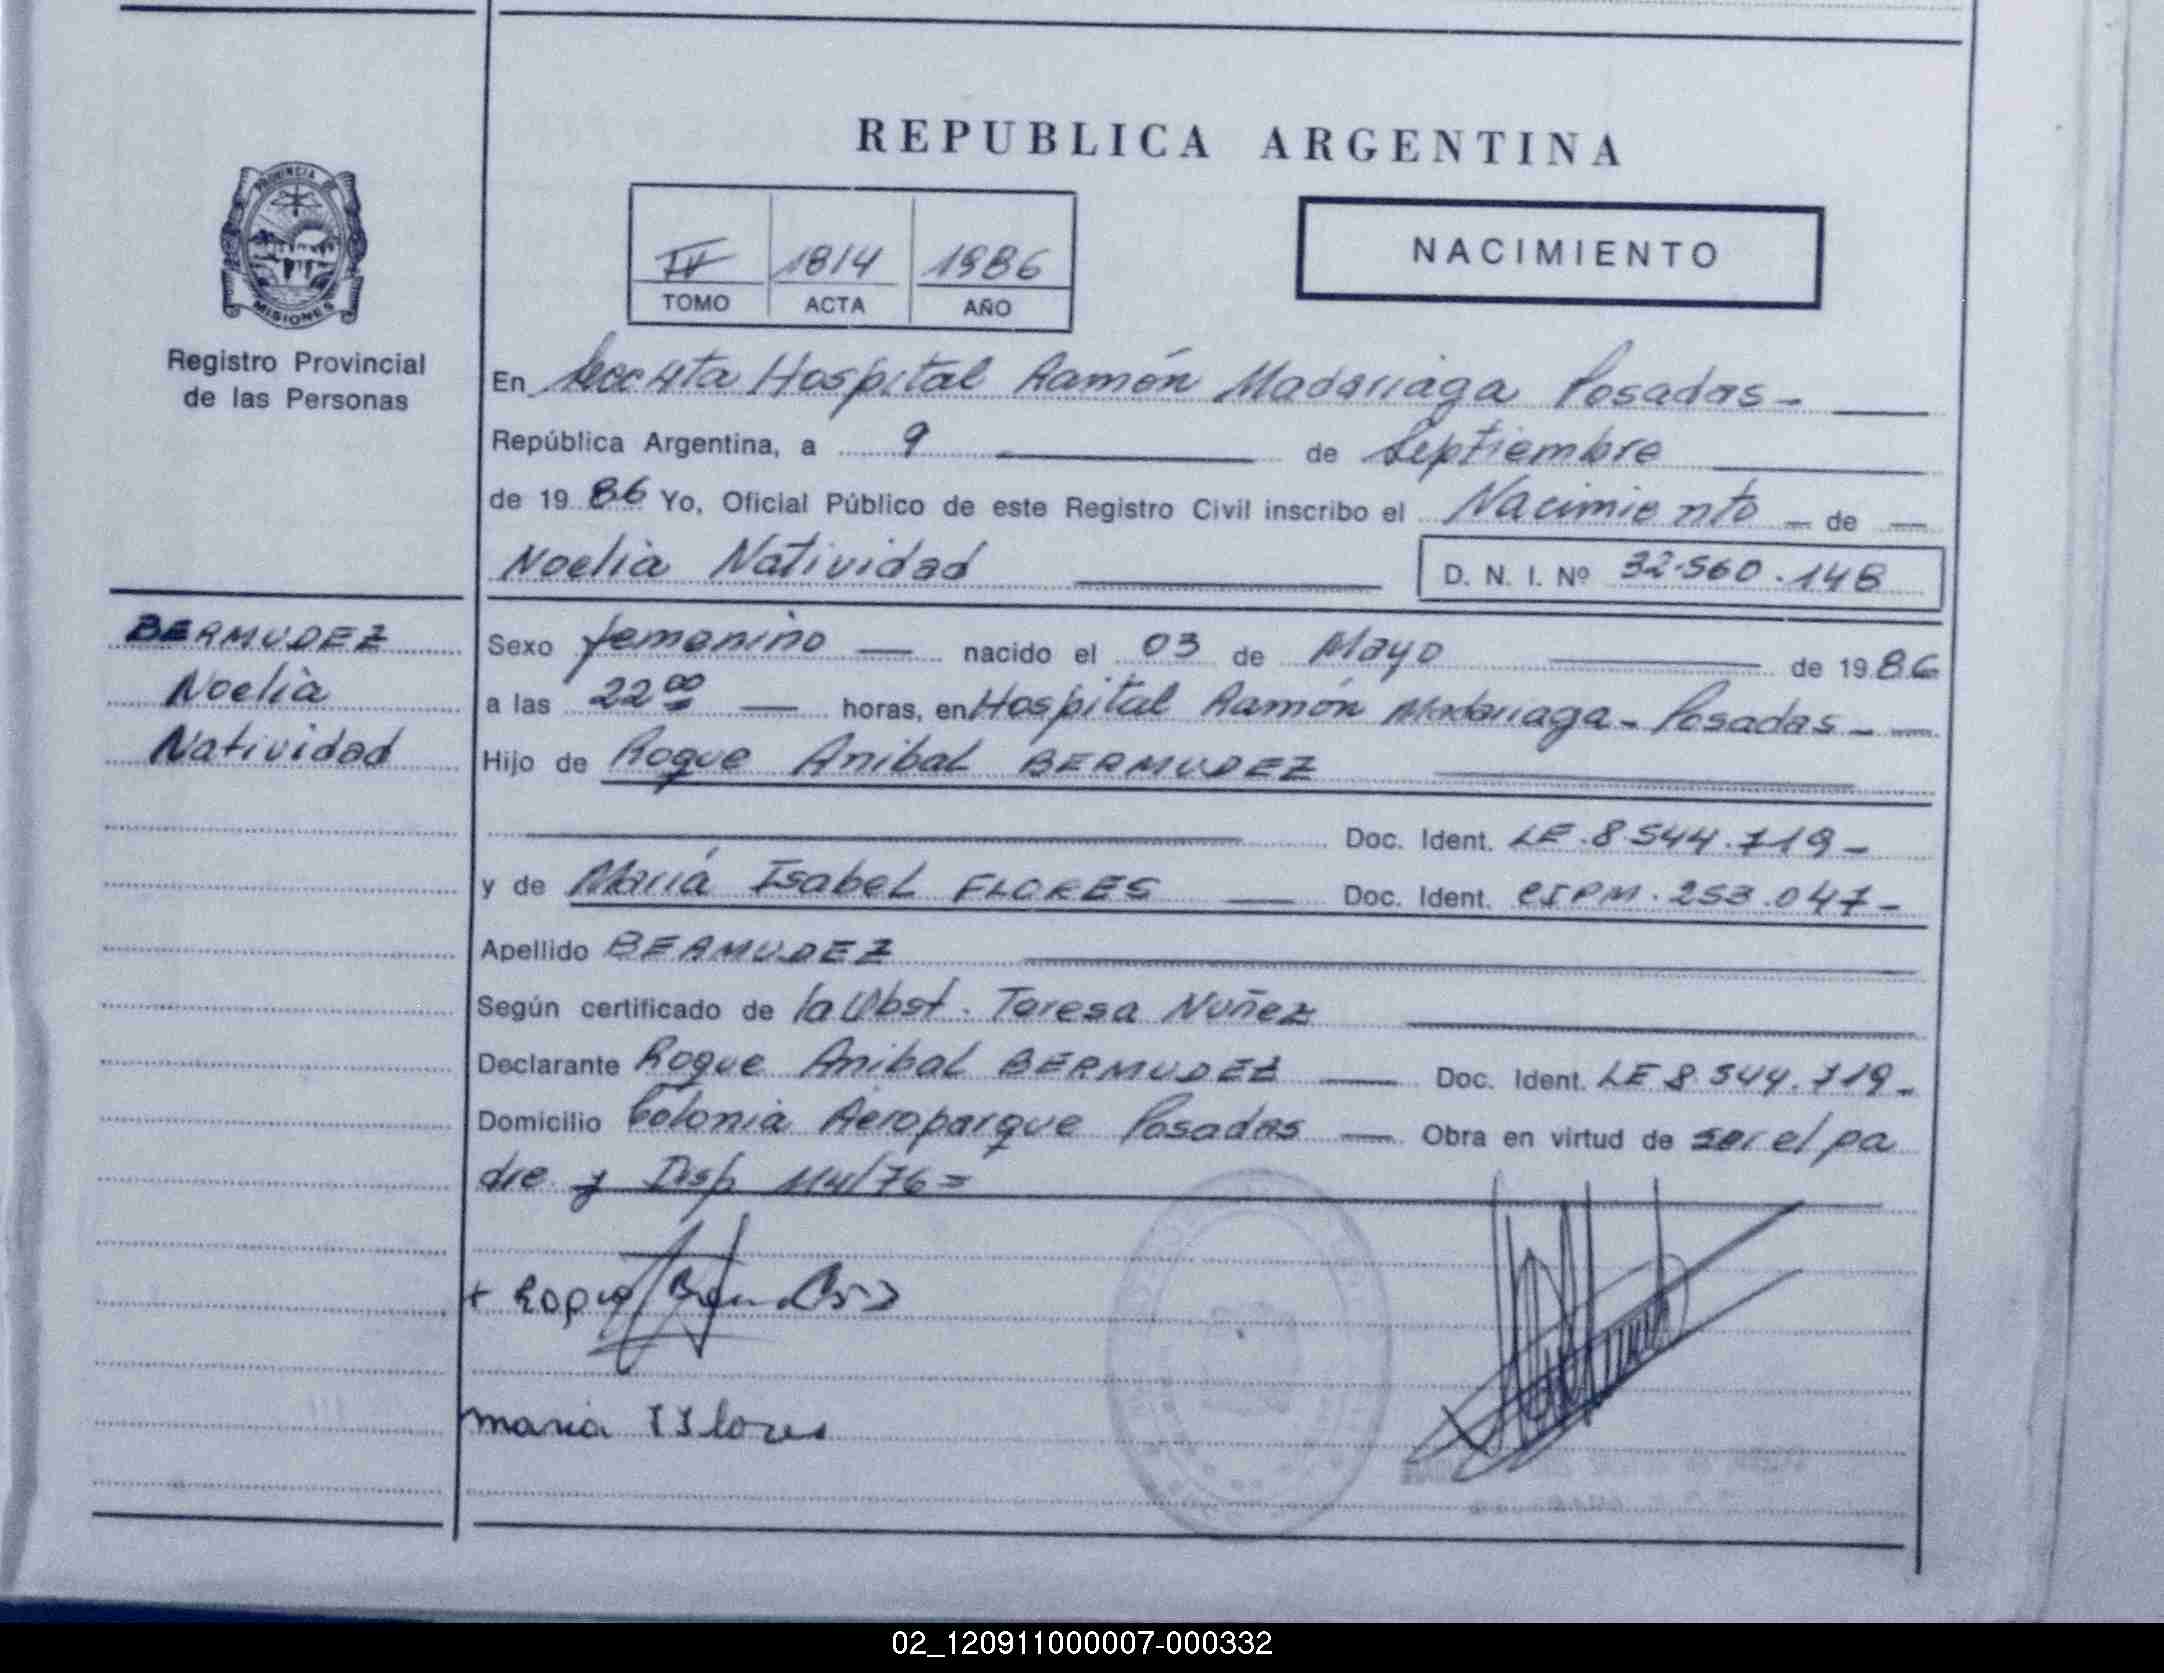 REPUBLICA ARGENTINA
PROVINCIA
MISIONES
Registro Provincial
de las Personas
IV 1814 1986
TOMO ACTA AÑO
NACIMIENTO
En Hospital Ramón Madariaga Posadas -
República Argentina, a 9 de Septiembre
de 1986 Yo, Oficial Público de este Registro Civil inscribo el Nacimiento - de -
Noelia Natividad D. N. I. Nº 32.560.148
BERMUDEZ
Noelia
Natividad
Sexo femenino nacido el 03 de Mayo de 1986
a las 22 00 horas, en Hospital Ramón Madariaga - Posadas -
Hijo de Roque Anibal BERMUDEZ
Doc. Ident. LE.8.544.719-
y de María Isabel FLORES Doc. Ident. CIPM.253.047-
Apellido BERMUDEZ
Según certificado de la Obst. Teresa Nuñez
Declarante Roque Anibal BERMUDEZ Doc. Ident. LE 8.544.719-
Domicilio Colonia Aeroparque Posadas Obra en virtud de ser el pa
dre y Disp 114/76=
+ Roque
maria I Flores
02_120911000007-000332